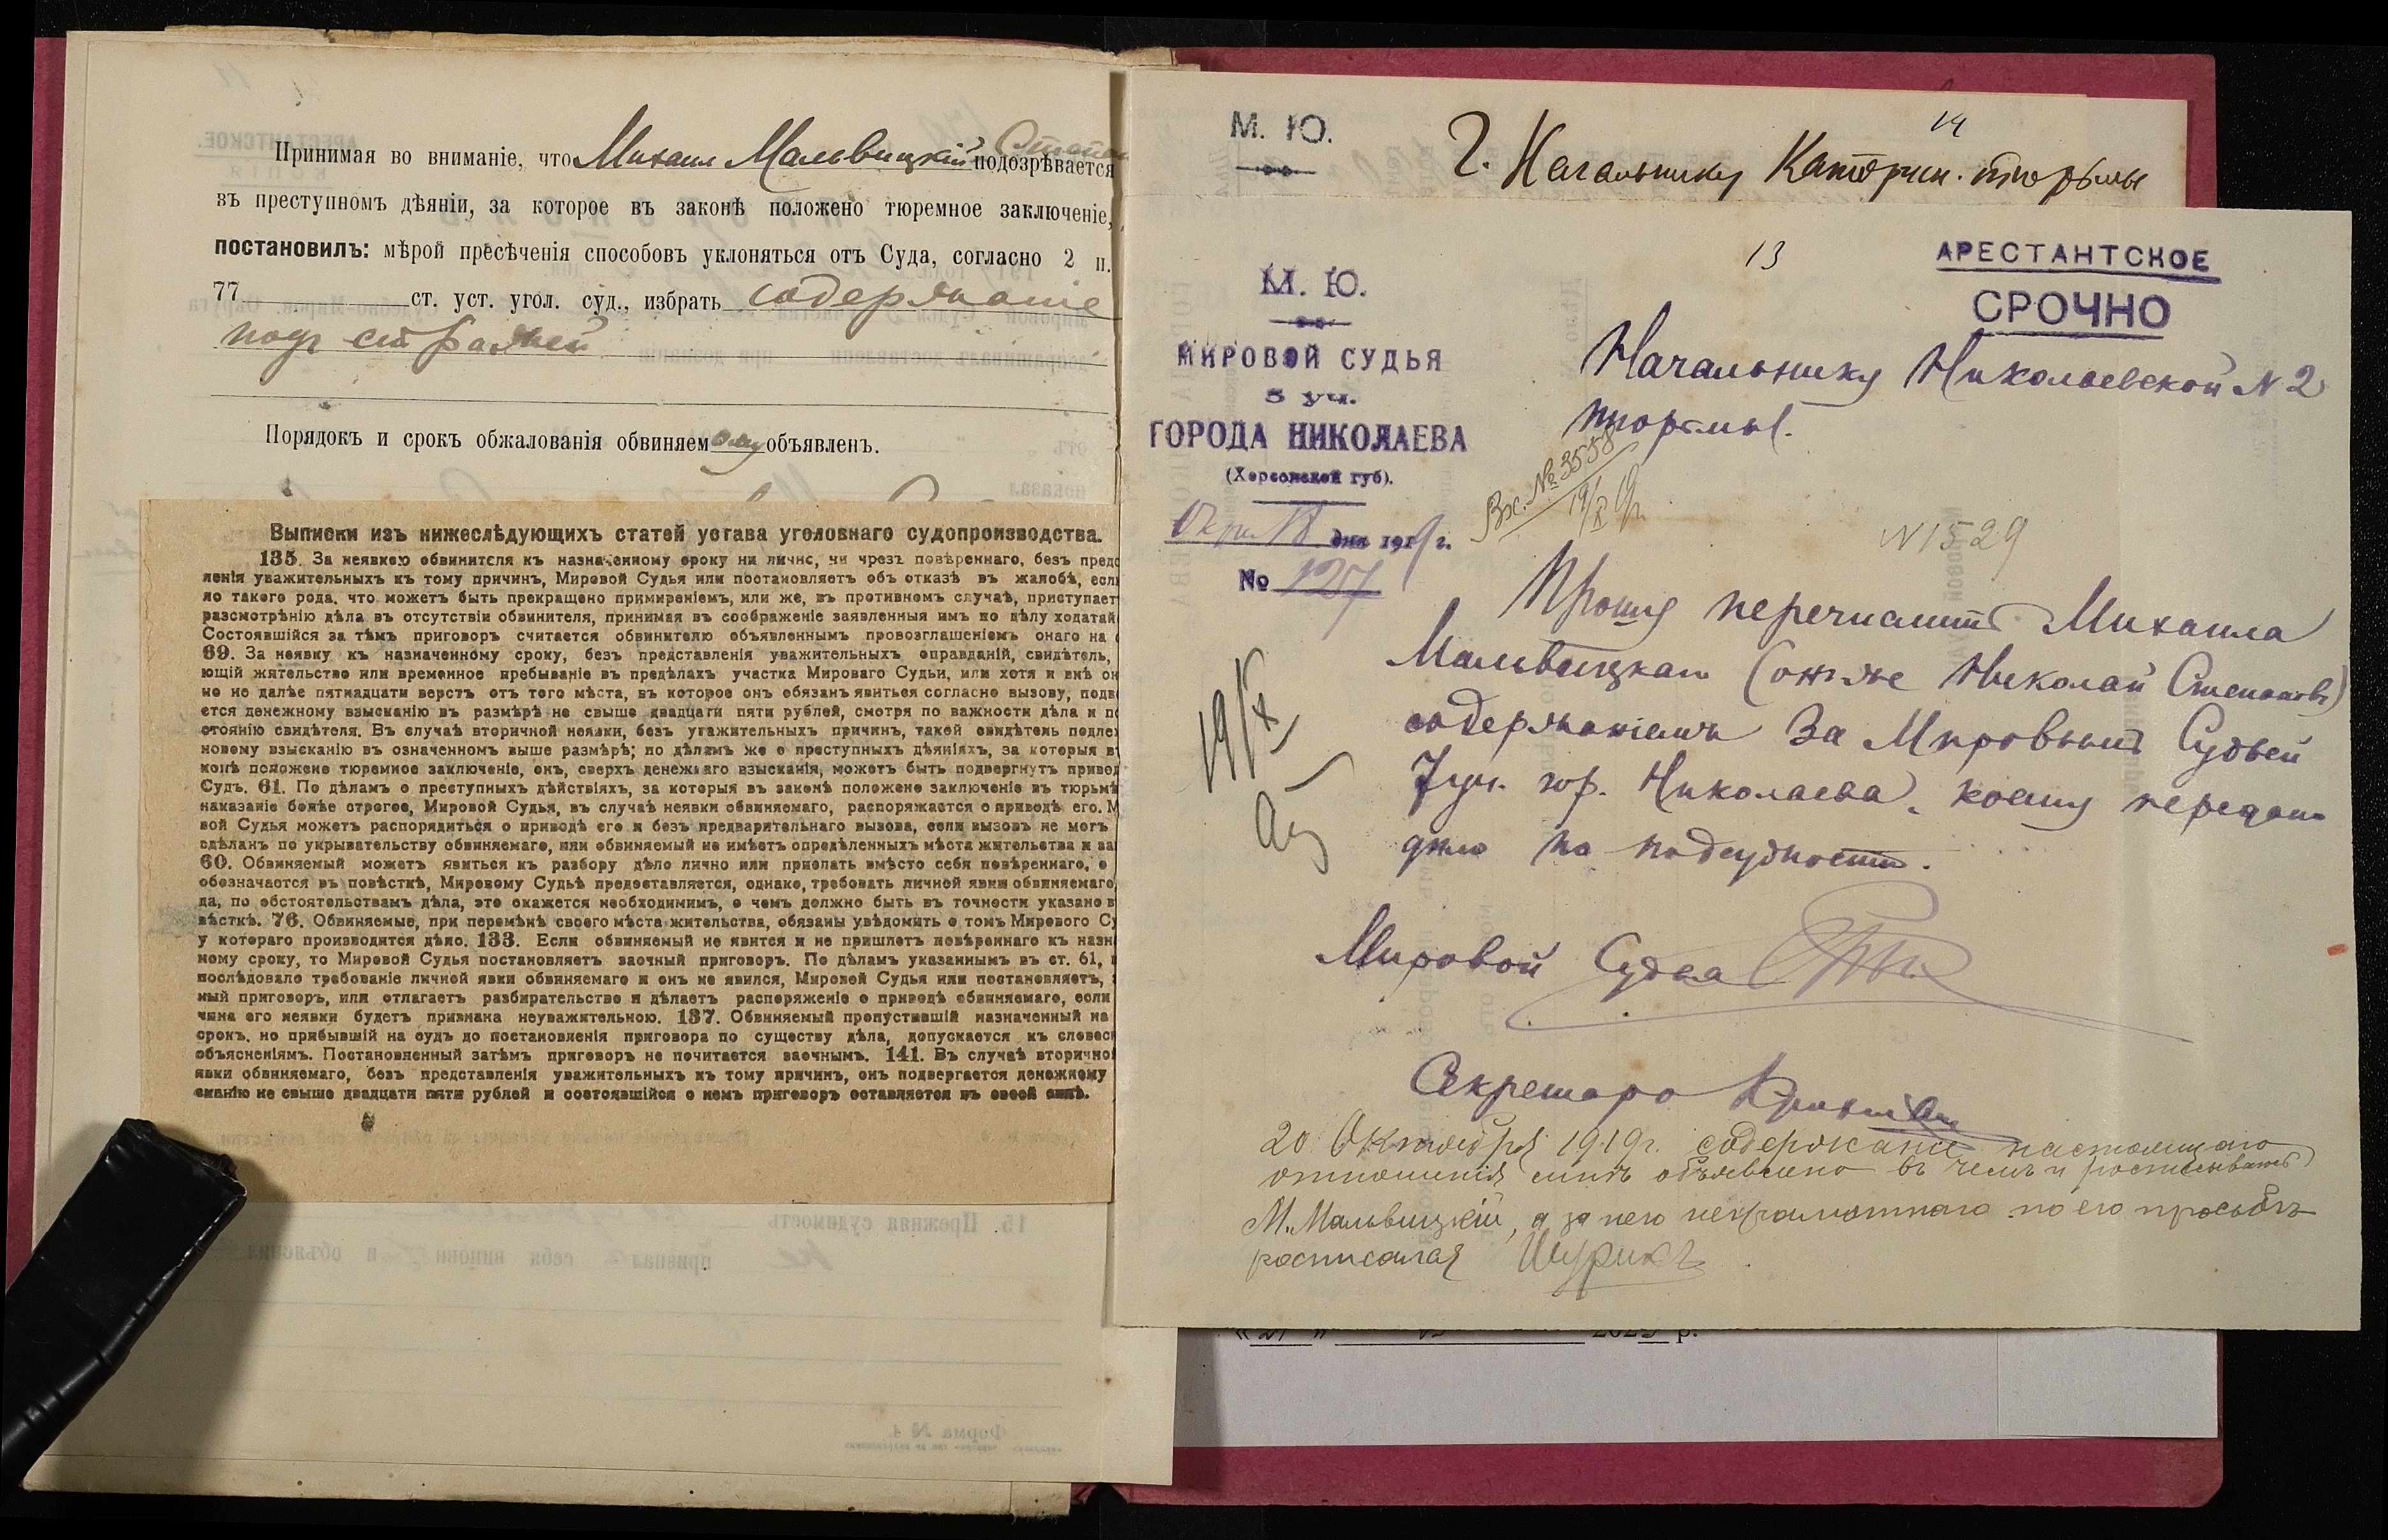 Принимая во вниманіе, что Михаил Мальвицкій подозрѣвается
въ преступномъ дѣяніи, за которое въ законѣ положено тюремное заключеніе,
постановилъ: мѣрой пресѣченія способовъ уклоняться отъ Суда, согласно 2 п.
77 ст. уст. угол. суд., избрать содержаніе
подъ стражей
Порядокъ и срокъ обжалованія обвиняемому объявленъ.
Выписки изъ нижеслѣдующихъ статей устава уголовнаго судопроизводства.
135. За неявкою обвинителя къ назначенному сроку ни лично, ни чрезъ повѣреннаго, безъ предс
ленія уважительныхъ къ тому причинъ, Мировой Судья или постановляетъ объ отказѣ въ жалобѣ, есл
ло такого рода, что можетъ быть прекращено примиреніемъ, или же, въ противномъ случаѣ, приступает
разсмотрѣнію дѣла въ отсутствіи обвинителя, принимая въ соображеніе заявленныя имъ по дѣлу ходатай
Состоявшійся за тѣмъ приговоръ считается обвинителю объявленнымъ провозглашеніемъ онаго на
69. За неявку къ назначенному сроку, безъ представленія уважительныхъ оправданій, свидѣтель,
ющій жительство или временное пребываніе въ предѣлахъ участка Мироваго Судьи, или хотя и внѣ он
но не далѣе пятнадцати верстъ отъ того мѣста, въ которое онъ обязанъ явиться согласно вызову, подв
ется денежному взысканію въ размѣрѣ не свыше двадцати пяти рублей, смотря по важности дѣла и по
стоянію свидѣтеля. Въ случаѣ вторичной неявки, безъ уважительныхъ причинъ, такой свидѣтель подле
новому взысканію въ означенномъ выше размѣрѣ; по дѣламъ же о преступныхъ дѣяніяхъ, за которыя в
конѣ положено тюремное заключеніе, онъ, сверхъ денежнаго взысканія, можетъ быть подвергнутъ привод
Судъ. 61. По дѣламъ о преступныхъ дѣйствіяхъ, за которыя въ законѣ положено заключеніе въ тюрьмѣ
наказаніе болѣе строгое, Мировой Судья, въ случаѣ неявки обвиняемаго, распоряжается о приводѣ его. М
вой Судья можетъ распорядиться о приводѣ его и безъ предварительнаго вызова, если вызовъ не могъ
сдѣланъ по укрывательству обвиняемаго, или обвиняемый не имѣетъ опредѣленныхъ мѣста жительства и за
60. Обвиняемый можетъ явиться къ разбору дѣло лично или прислать вмѣсто себя повѣреннаго, о
обозначается въ повѣсткѣ, Мировому Судьѣ предоставляется, однако, требовать личной явки обвиняемаго,
да, по обстоятельствамъ дѣла, это окажется необходимымъ, о чемъ должно быть въ точности указано в
вѣсткѣ. 76. Обвиняемые, при перемѣнѣ своего мѣста жительства, обязаны увѣдомить о томъ Мирового Су
у котораго производится дѣло. 133. Если обвиняемый не явится и не пришлетъ повѣреннаго къ назн
ному сроку, то Мировой Судья постановляетъ заочный приговоръ. По дѣламъ указаннымъ въ ст. 61,
послѣдовало требованіе личной явки обвиняемаго и онъ не явился, Мировой Судья или постановляетъ,
ный приговоръ, или отлагаетъ разбирательство и дѣлаетъ распоряженіе о приводѣ обвиняемаго, если
чина его неявки будетъ признана неуважительною. 137. Обвиняемый пропустившій назначенный на
срокъ, но прибывшій на судъ до постановленія приговора по существу дѣла, допускается къ словес
объясненіямъ. Постановленный затѣмъ приговоръ не почитается заочнымъ. 141. Въ случаѣ вторично
явки обвиняемаго, безъ представленія уважительныхъ къ тому причинъ, онъ подвергается денежному
сканію не свыше двадцати пяти рублей и состоявшійся о немъ приговоръ оставляется въ своей силѣ.
М. Ю.
14
Г. Начальнику Каторжн. тюрьмы
13
АРЕСТАНТСКОЕ
СРОЧНО
М. Ю.
МИРОВОЙ СУДЬЯ
3 уч.
ГОРОДА НИКОЛАЕВА
(Херсонской губ).
Окт. 18 дня 1919 г.
№ 127
Начальнику Николаевской N 2
тюрьмы.
Вх. № 3558
19/X 19 г.
N 1529
19/X
Прошу перечислить Михаила
Мальвицкаго (он же Николай Степановъ)
содержаніемъ за Мировымъ Судьей
7 уч. гор. Николаева, коему передано
дѣло по подсудности.
Мировой Судья
Секретарь
20 Октября 1919 г. содержаніе настоящаго
отношенія мнѣ объявлено въ чемъ и росписываюсь
М. Мальвицкій, а за него неграмотнаго по его просьбѣ
росписался